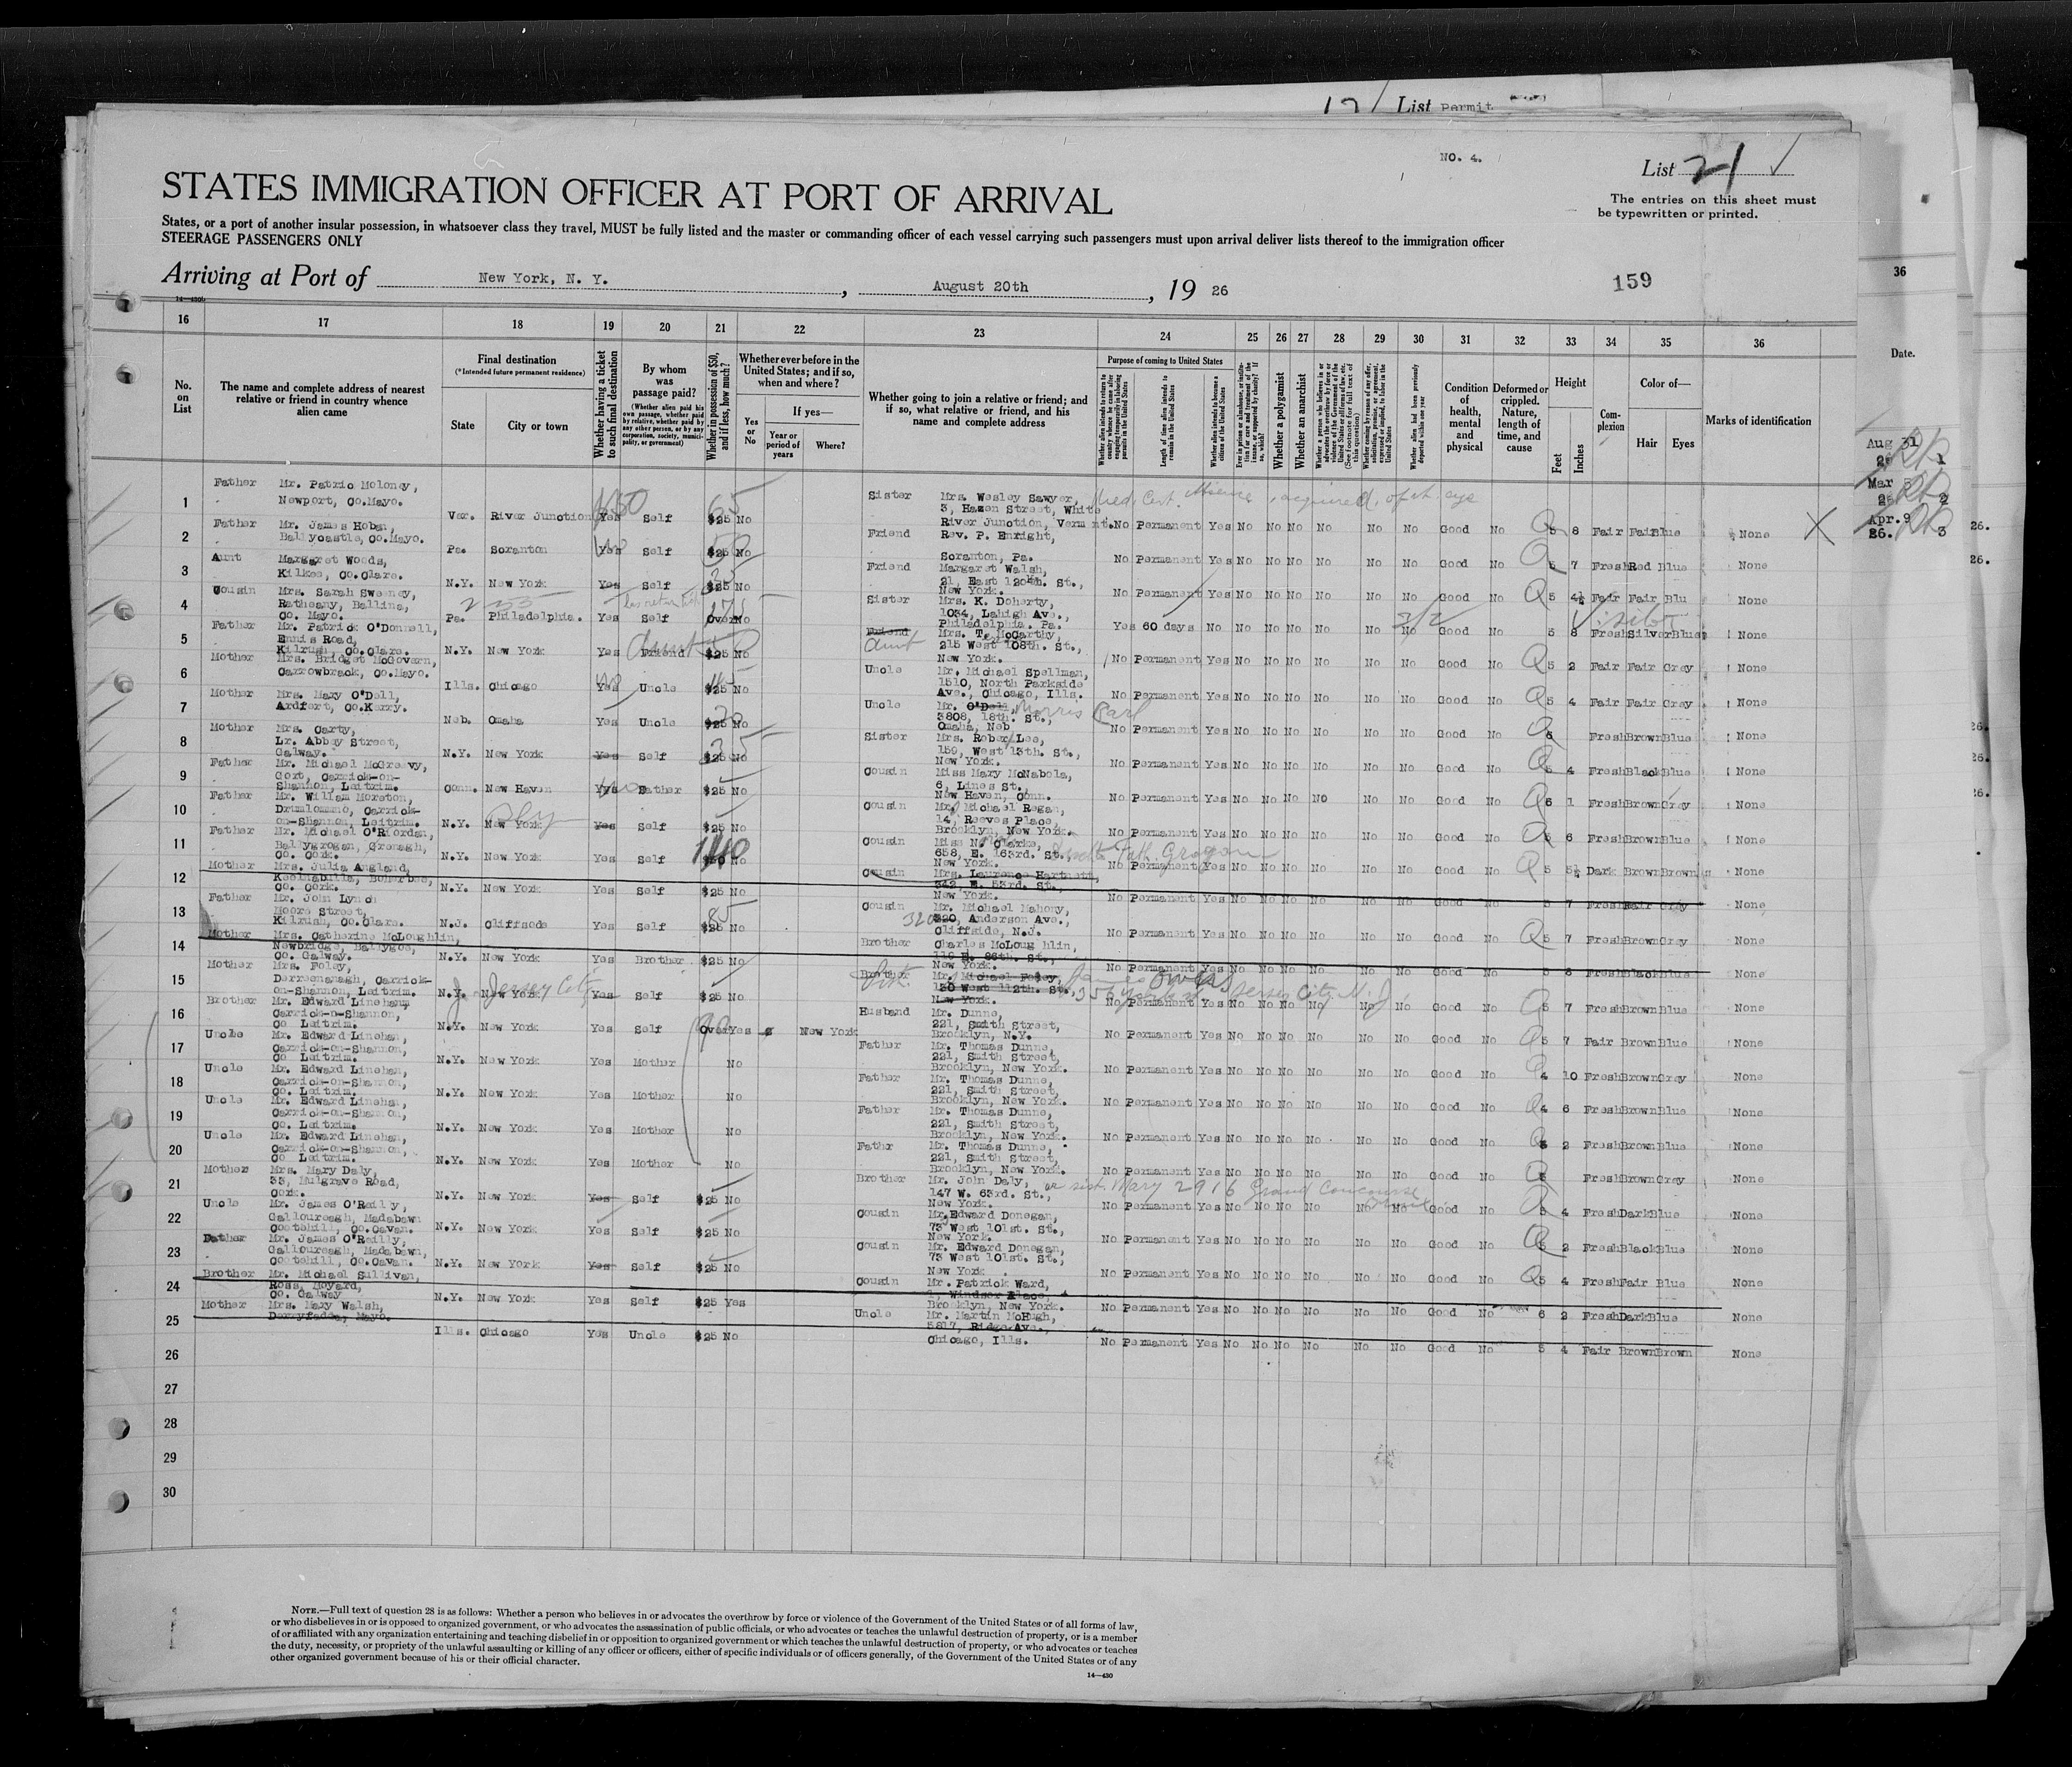 17 List Permit
NO. 4.
List 21
The entries on this sheet must
be typewritten or printed.
STATES IMMIGRATION OFFICER AT PORT OF ARRIVAL
States, or a port of another insular possession, in whatsoever class they travel, MUST be fully listed and the master or commanding officer of each vessel carrying such passengers must upon arrival deliver lists thereof to the immigration officer
STEERAGE PASSENGERS ONLY
Arriving at Port of New York, N. Y., August 20th, 19 26
159
14—430
16 17 18 19 20 21 22 23 24 25 26 27 28 29 30 31 32 33 34 35 36
No. on List
The name and complete address of nearest relative or friend in country whence alien came
Final destination
(*Intended future permanent residence)
State
City or town
Whether having a ticket to such final destination
By whom was passage paid?
(Whether alien paid his own passage, whether paid by relative, whether paid by any other person, or by any corporation, society, municipality, or government)
Whether in possession of $50, and if less, how much?
Whether ever before in the United States; and if so, when and where?
Yes or No
If yes—
Year or period of years
Where?
Whether going to join a relative or friend; and if so, what relative or friend, and his name and complete address
Purpose of coming to United States
Length of time alien intends to remain in the United States
Whether alien intends to become a citizen of the United States
Whether a polygamist
Whether an anarchist
Condition of health, mental and physical
Deformed or crippled. Nature, length of time, and cause
Height
Feet
Inches
Complexion
Color of—
Hair
Eyes
Marks of identification
1 Father Mr. Patric Moloney, Newport, Co.Mayo. Ver. River Junction Yes Self $25 No Sister Mrs. Wesley Sawyer, 3, Hazen Street, White River Junction, Vermont. No Permanent Yes No No No No No No Good No 5 8 Fair Fair Blue None
2 Father Mr. James Hoban, Ballycastle, Co.Mayo. Pa. Scranton Yes Self $25 No Friend Rev. P. Enright, Scranton, Pa. No Permanent Yes No No No No No No Good No 5 7 Fresh Red Blue None
3 Aunt Margaret Woods, Kilkee, Co.Clare. N.Y. New York Yes Self $25 No Friend Margaret Walsh, 21, East 120th. St., New York. No Permanent Yes No No No No No No Good No 5 4½ Fair Fair Blu None
4 Cousin Mrs. Sarah Sweeney, Ratheany, Ballina, Co. Mayo. Pa. Philadelphia. Yes Self Over No Sister Mrs. K. Doherty, 1034, Lehigh Ave., Philadelphia. Pa. Yes 60 days No No No No No No No Good No 5 8 Fresh Silver Blue None
5 Father Mr. Patrick O'Donnell, Ennis Road, Kilrush, Co.Clare. N.Y. New York Yes Friend Aunt $25 No Friend Aunt Mrs. T. McCarthy, 215 West 108th. St., New York. No Permanent Yes No No No No No No Good No 5 2 Fair Fair Grey None
6 Mother Mrs. Bridget McGovern, Carrowbrack, Co.Mayo. Ills. Chicago Yes Uncle $25 No Uncle Mr. Michael Spellman, 1510, North Parkside Ave., Chicago, Ills. No Permanent Yes No No No No No No Good No 5 4 Fair Fair Grey None
7 Mother Mrs. Mary O'Dell, Ardfert, Co.Kerry. Neb. Omaha Yes Uncle $25 No Uncle Mr. O'Dell, Morris 3808, 18th. St., Omaha, Neb No Permanent Yes No No No No No No Good No 5 Fresh Brown Blue None
8 Mother Mrs. Carty, Lr. Abbey Street, Galway. N.Y. New York Yes Self $25 No Sister Mrs. Rober Lee, 159, West 13th. St., New York. No Permanent Yes No No No No No No Good No 5 4 Fresh Black Blue None
9 Father Mr. Michael McGreevy, Gort, Carrick-on-Shannon, Leitrim. Conn. New Haven Yes Father $25 No Cousin Miss Mary McNabola, 6, Lines St., New Haven, Conn. No Permanent Yes No No No No No No Good No 6 1 Fresh Brown Grey None
10 Father Mr. William Moreton, Drumlommno, Carrick-on-Shannon, Leitrim. N.Y. New York Yes Self $25 No Cousin Mr. Michael Regan, 14, Reeves Place, Brooklyn, New York. No Permanent Yes No No No No No No Good No 5 6 Fresh Brown Blue None
11 Father Mr. Michael O'Riordan, Ballygrogan, Grenagh, Co. Cork. N.Y. New York Yes Self 140 No Cousin Miss N. Clarke, 658, E. 163rd. St., New York. No Permanent Yes No No No No No No Good No 5 5½ Dark Brown Brown None
12 Mother Mrs. Julia Angland, Boherbue, Co. Cork. N.Y. New York Yes Self $25 No Cousin Mrs. Laurence Hartnett, 342, E. 53rd. St., New York. No Permanent Yes No No No No No No Good No 5 7 Fresh Fair Grey None
13 Father Mr. John Lynch Moore Street, Kilrush, Co.Clare. N.J. Cliffsode Yes Self $25 No Cousin Mr. Michael Mahony, 320, Anderson Ave., Cliffside, N.J. No Permanent Yes No No No No No No Good No 5 7 Fresh Brown Grey None
14 Mother Mrs. Catherine McLoughlin, Newbridge, Ballygoe, Co. Galway. N.Y. New York Yes Brother $25 No Brother Charles McLoug hlin, 110 E. 86th. St., New York. No Permanent Yes No No No No No No Good No 5 8 Fresh Black Blue None
15 Mother Mrs. Foley, Derreenanagh, Carrick-on-Shannon, Leitrim. N.Y. New York Jersey City Yes Self $25 No Brother Mr. Michael Foley, 130 West 112th. St., New York. Jersey City N.J. No Permanent Yes No No No No No No Good No 5 7 Fresh Brown Blue None
16 Brother Mr. Edward Linehan, Carrick-o-Shannon, Co Leitrim. N.Y. New York Yes Self Over Yes New York Husband Mr. Dunne, 221, Smith Street, Brooklyn, N.Y. No Permanent Yes No No No No No No Good No 5 7 Fair Brown Blue None
17 Uncle Mr. Edward Linehan, Carrick-on-Shannon, Co Leitrim. N.Y. New York Yes Mother No Father Mr. Thomas Dunne, 221, Smith Street, Brooklyn, New York. No Permanent Yes No No No No No No Good No 4 10 Fresh Brown Grey None
18 Uncle Mr. Edward Linehan, Carrick-on-Shannon, Co. Leitrim. N.Y. New York Yes Mother No Father Mr. Thomas Dunne, 221, Smith Street, Brooklyn, New York. No Permanent Yes No No No No No No Good No 4 6 Fresh Brown Blue None
19 Uncle Mr. Edward Linehan, Carrick-on-Shannon, Co. Leitrim. N.Y. New York Yes Mother No Father Mr. Thomas Dunne, 221, Smith Street, Brooklyn, New York. No Permanent Yes No No No No No No Good No 2 Fresh Brown Blue None
20 Uncle Mr. Edward Linehan, Carrick-on-Shannon, Co Leitrim. N.Y. New York Yes Mother No Fathr Mr. Thomas Dunne, 221, Smith Street, Brooklyn, New York. No Permanent Yes No No No No No No Good No Fresh Brown Grey None
21 Mother Mrs. Mary Daly, 33, Mulgrave Road, Cork. N.Y. New York Yes Self $25 No Brother Mr. John Daly, 147 W. 63rd. St., New York. or sist. Mary 2916 Grand Concourse No Permanent Yes No No No No No No Good No 5 4 Fresh Dark Blue None
22 Uncle Mr. James O'Reilly, Galloureagh, Madabawn Cootehill, Co.Cavan. N.Y. New York Yes Self $25 No Cousin Mr. Edward Donegan, 73 West 101st. St., New York. No Permanent Yes No No No No No No Good No 5 2 Fresh Black Blue None
23 Father Mr. James O'Reilly, Galloureagh, Madabawn, Cootehill, Co.Cavan. N.Y. New York Yes Self $25 No Cousin Mr. Edward Donegan, 73 West 101st. St., New York. No Permanent Yes No No No No No No Good No 5 4 Fresh Fair Blue None
24 Brother Mr. Michael Sullivan, Ross, Moyard, Co. Galway N.Y. New York Yes Self $25 Yes Cousin Mr. Patrick Ward, 1, Windsor Place, Brooklyn, New York. No Permanent Yes No No No No No No Good No 6 2 Fresh Dark Blue None
25 Mother Mrs. Mary Walsh, Derryfadda, Mayo. Ills. Chicago Yes Uncle $25 No Uncle Mr. Martin McHugh, 5817, Ridge Ave., Chicago, Ills. No Permanent Yes No No No No No No Good No 5 4 Fair Brown Brown None
26
27
28
29
30
36
Date.
Aug 31
26 1
Mar 5
26 2
Apr.9
26. 3
26.
26.
NOTE.—Full text of question 28 is as follows: Whether a person who believes in or advocates the overthrow by force or violence of the Government of the United States or of all forms of law,
or who disbelieves in or is opposed to organized government, or who advocates the assassination of public officials, or who advocates or teaches the unlawful destruction of property, or is a member
of or affiliated with any organization entertaining and teaching disbelief in or opposition to organized government or which teaches the unlawful destruction of property, or who advocates or teaches
the duty, necessity, or propriety of the unlawful assaulting or killing of any officer or officers, either of specific individuals or of officers generally, of the Government of the United States or of any
other organized government because of his or their official character.
14—430